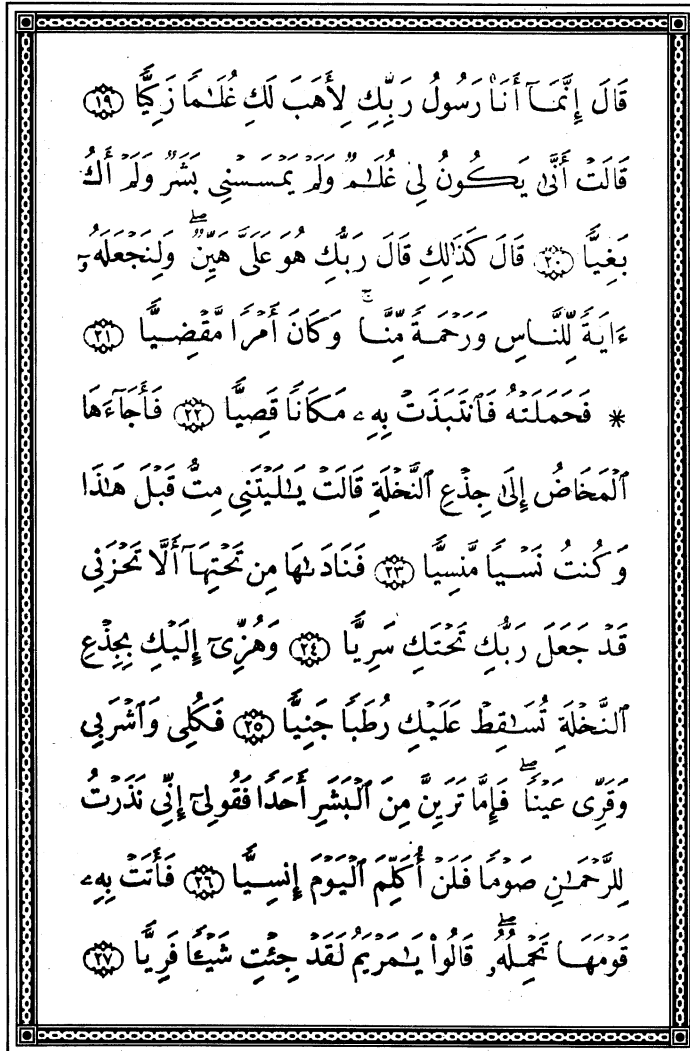 قَالَ إِنَّمَآ أَنَا۠ رَسُولُ رَبِّكِ لِأَهَبَ لَكِ غُلَٰمًا زَكِيًّا ١٩
قَالَتْ أَنَّىٰ يَكُونُ لِي غُلَٰمٌ وَلَمْ يَمْسَسْنِي بَشَرٌ وَلَمْ أَكُ
بَغِيًّا ٢٠ قَالَ كَذَٰلِكِ قَالَ رَبُّكِ هُوَ عَلَيَّ هَيِّنٌۖ وَلِنَجْعَلَهُۥٓ
ءَايَةً لِّلنَّاسِ وَرَحْمَةً مِّنَّاۚ وَكَانَ أَمْرًا مَّقْضِيًّا ٢١
* فَحَمَلَتْهُ فَٱنتَبَذَتْ بِهِۦ مَكَانًا قَصِيًّا ٢٢ فَأَجَآءَهَا
ٱلْمَخَاضُ إِلَىٰ جِذْعِ ٱلنَّخْلَةِ قَالَتْ يَٰلَيْتَنِي مِتُّ قَبْلَ هَٰذَا
وَكُنتُ نَسْيًا مَّنسِيًّا ٢٣ فَنَادَىٰهَا مِن تَحْتِهَآ أَلَّا تَحْزَنِي
قَدْ جَعَلَ رَبُّكِ تَحْتَكِ سَرِيًّا ٢٤ وَهُزِّيٓ إِلَيْكِ بِجِذْعِ
ٱلنَّخْلَةِ تُسَٰقِطْ عَلَيْكِ رُطَبًا جَنِيًّا ٢٥ فَكُلِي وَٱشْرَبِي
وَقَرِّي عَيْنًاۖ فَإِمَّا تَرَيِنَّ مِنَ ٱلْبَشَرِ أَحَدًا فَقُولِيٓ إِنِّي نَذَرْتُ
لِلرَّحْمَٰنِ صَوْمًا فَلَنْ أُكَلِّمَ ٱلْيَوْمَ إِنسِيًّا ٢٦ فَأَتَتْ بِهِۦ
قَوْمَهَا تَحْمِلُهُۥۖ قَالُوا۟ يَٰمَرْيَمُ لَقَدْ جِئْتِ شَيْـًٔا فَرِيًّا ٢٧